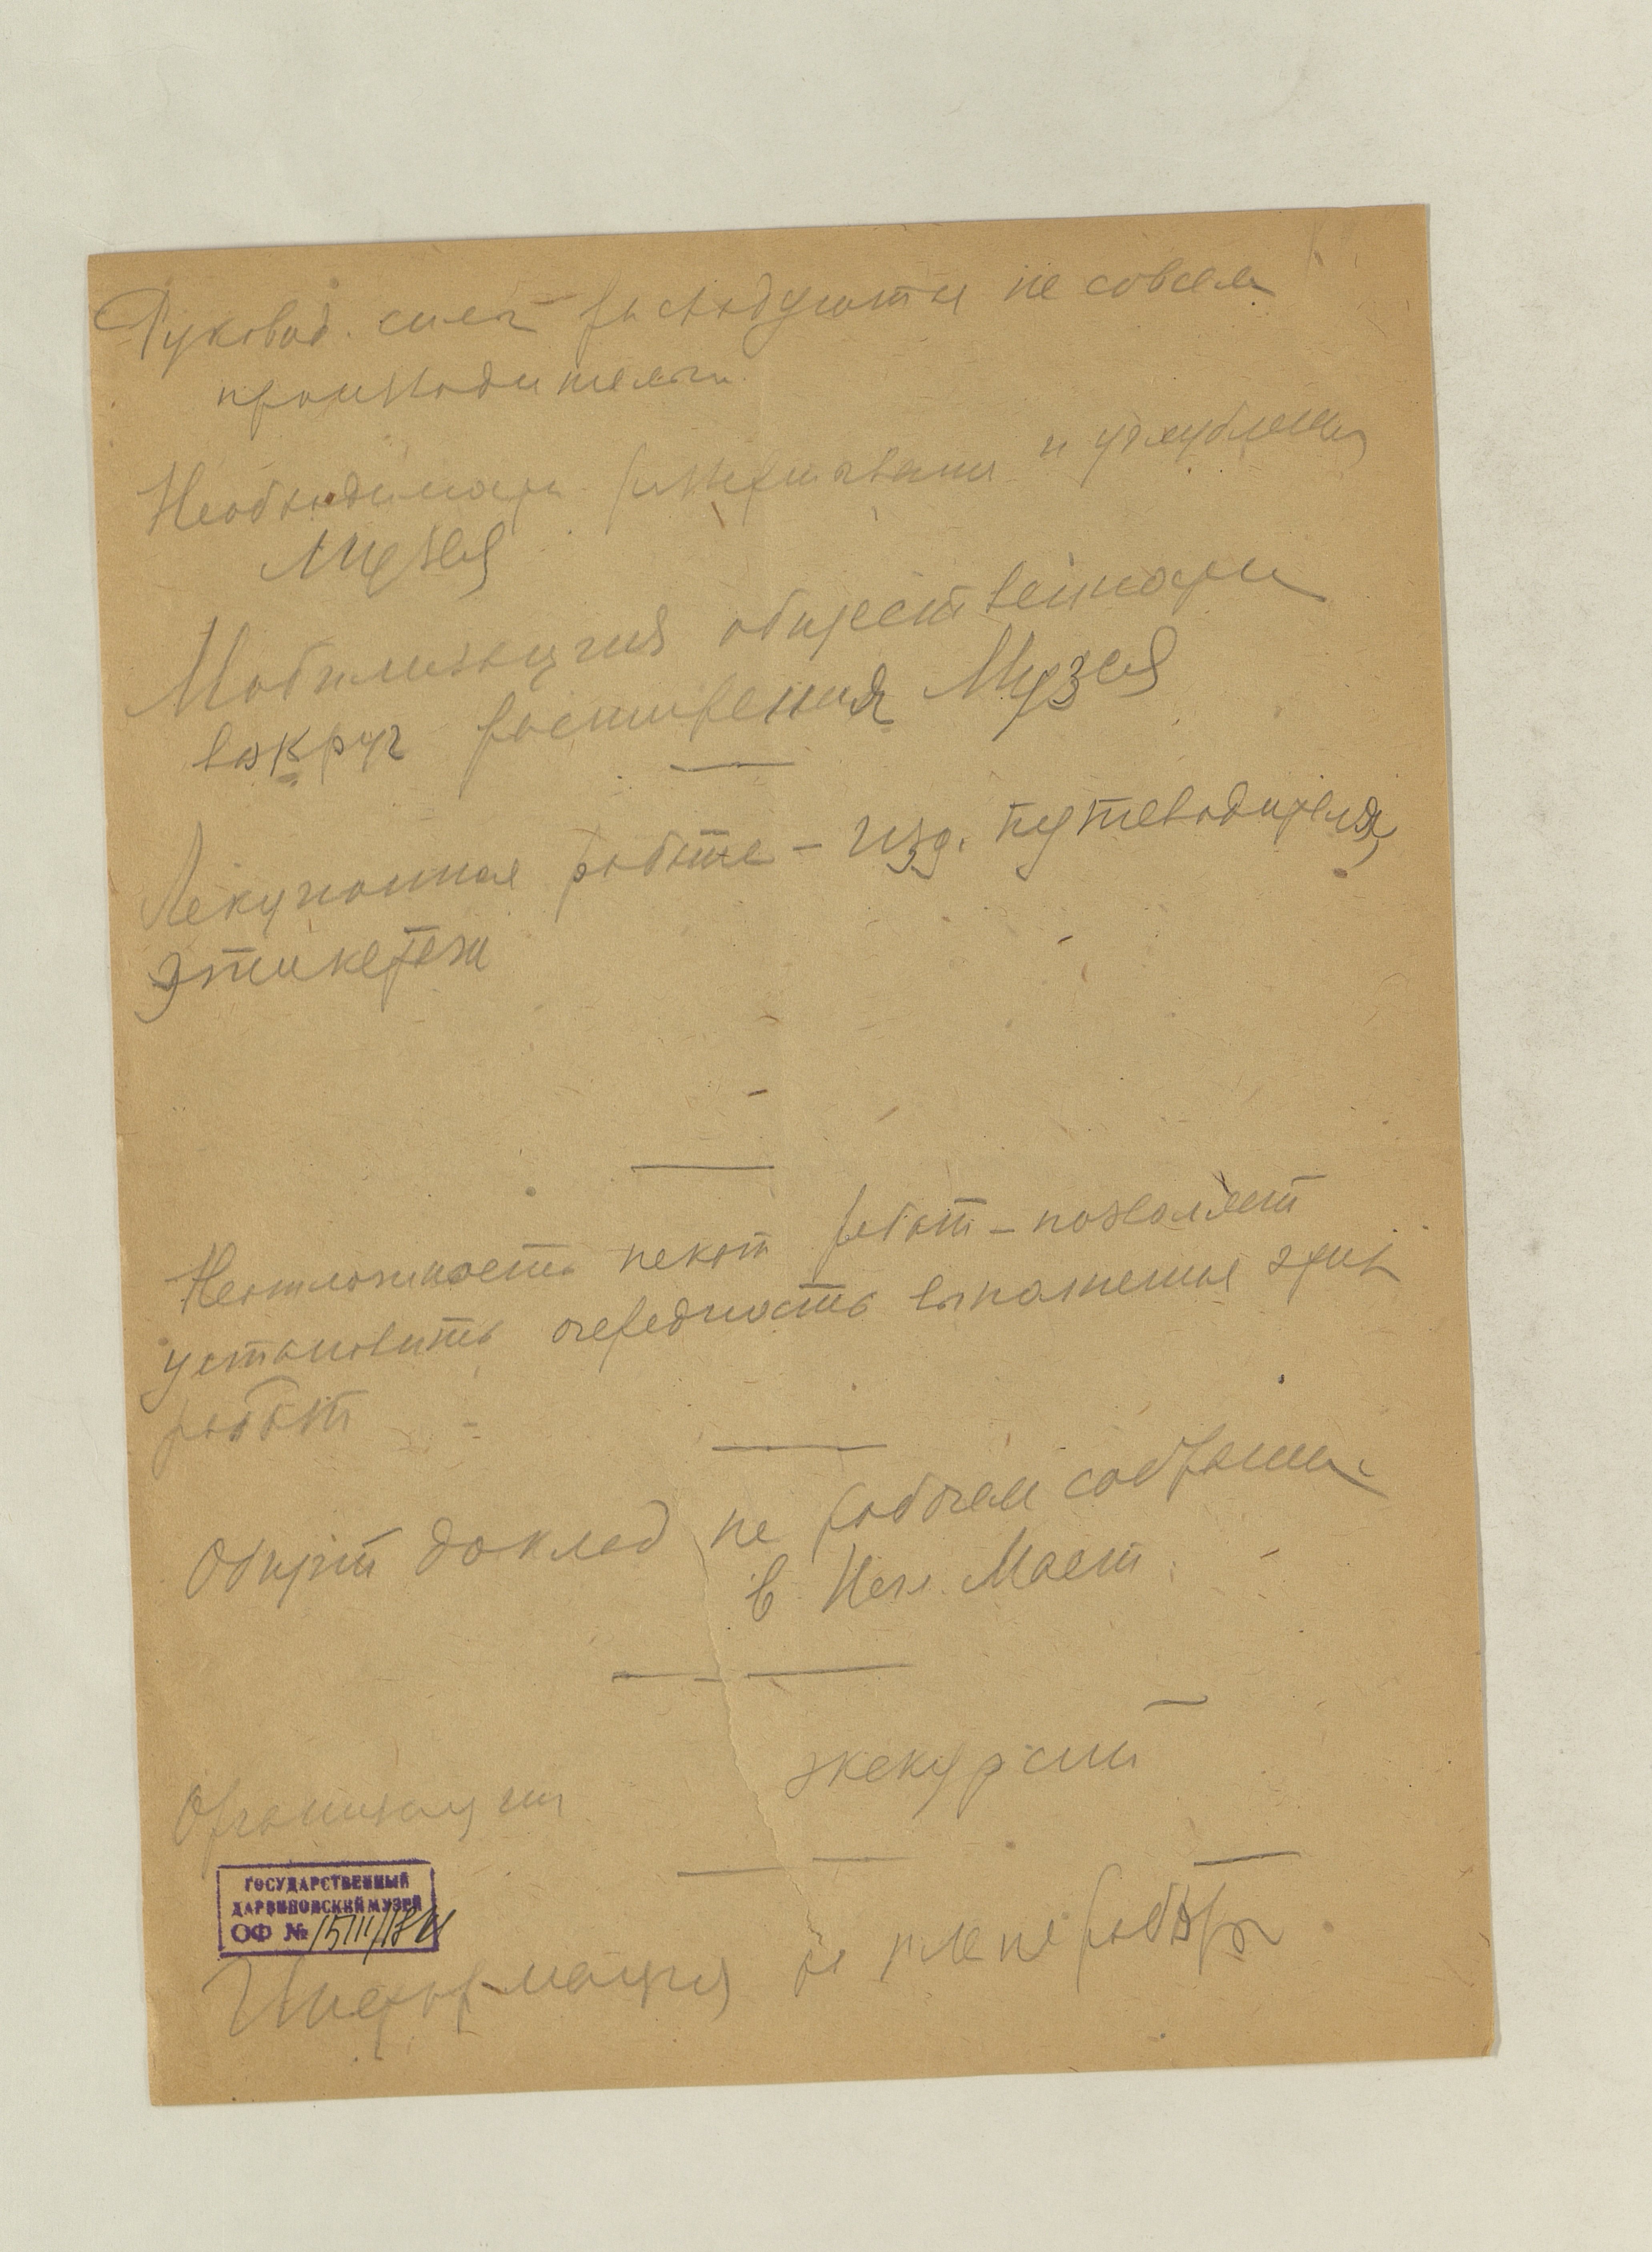 Руковод. сил расходуются не совсем
производительн.
Необходимости расширения и углубления
Музея
Мобилизация общественности
вокруг расширения Музея
Лекционная работа – изд. путеводителя,
этикетаж
Неотложность некот работ – позволяет
установить очередность выполнения этих
работ
Общий доклад на рабочем собрании
в Мест.
экскурсий
Организации
ГОСУДАРСТВЕННЫЙ
ДАРВИНОВСКИЙ МУЗЕЙ
ОФ №
Информация о плане работы